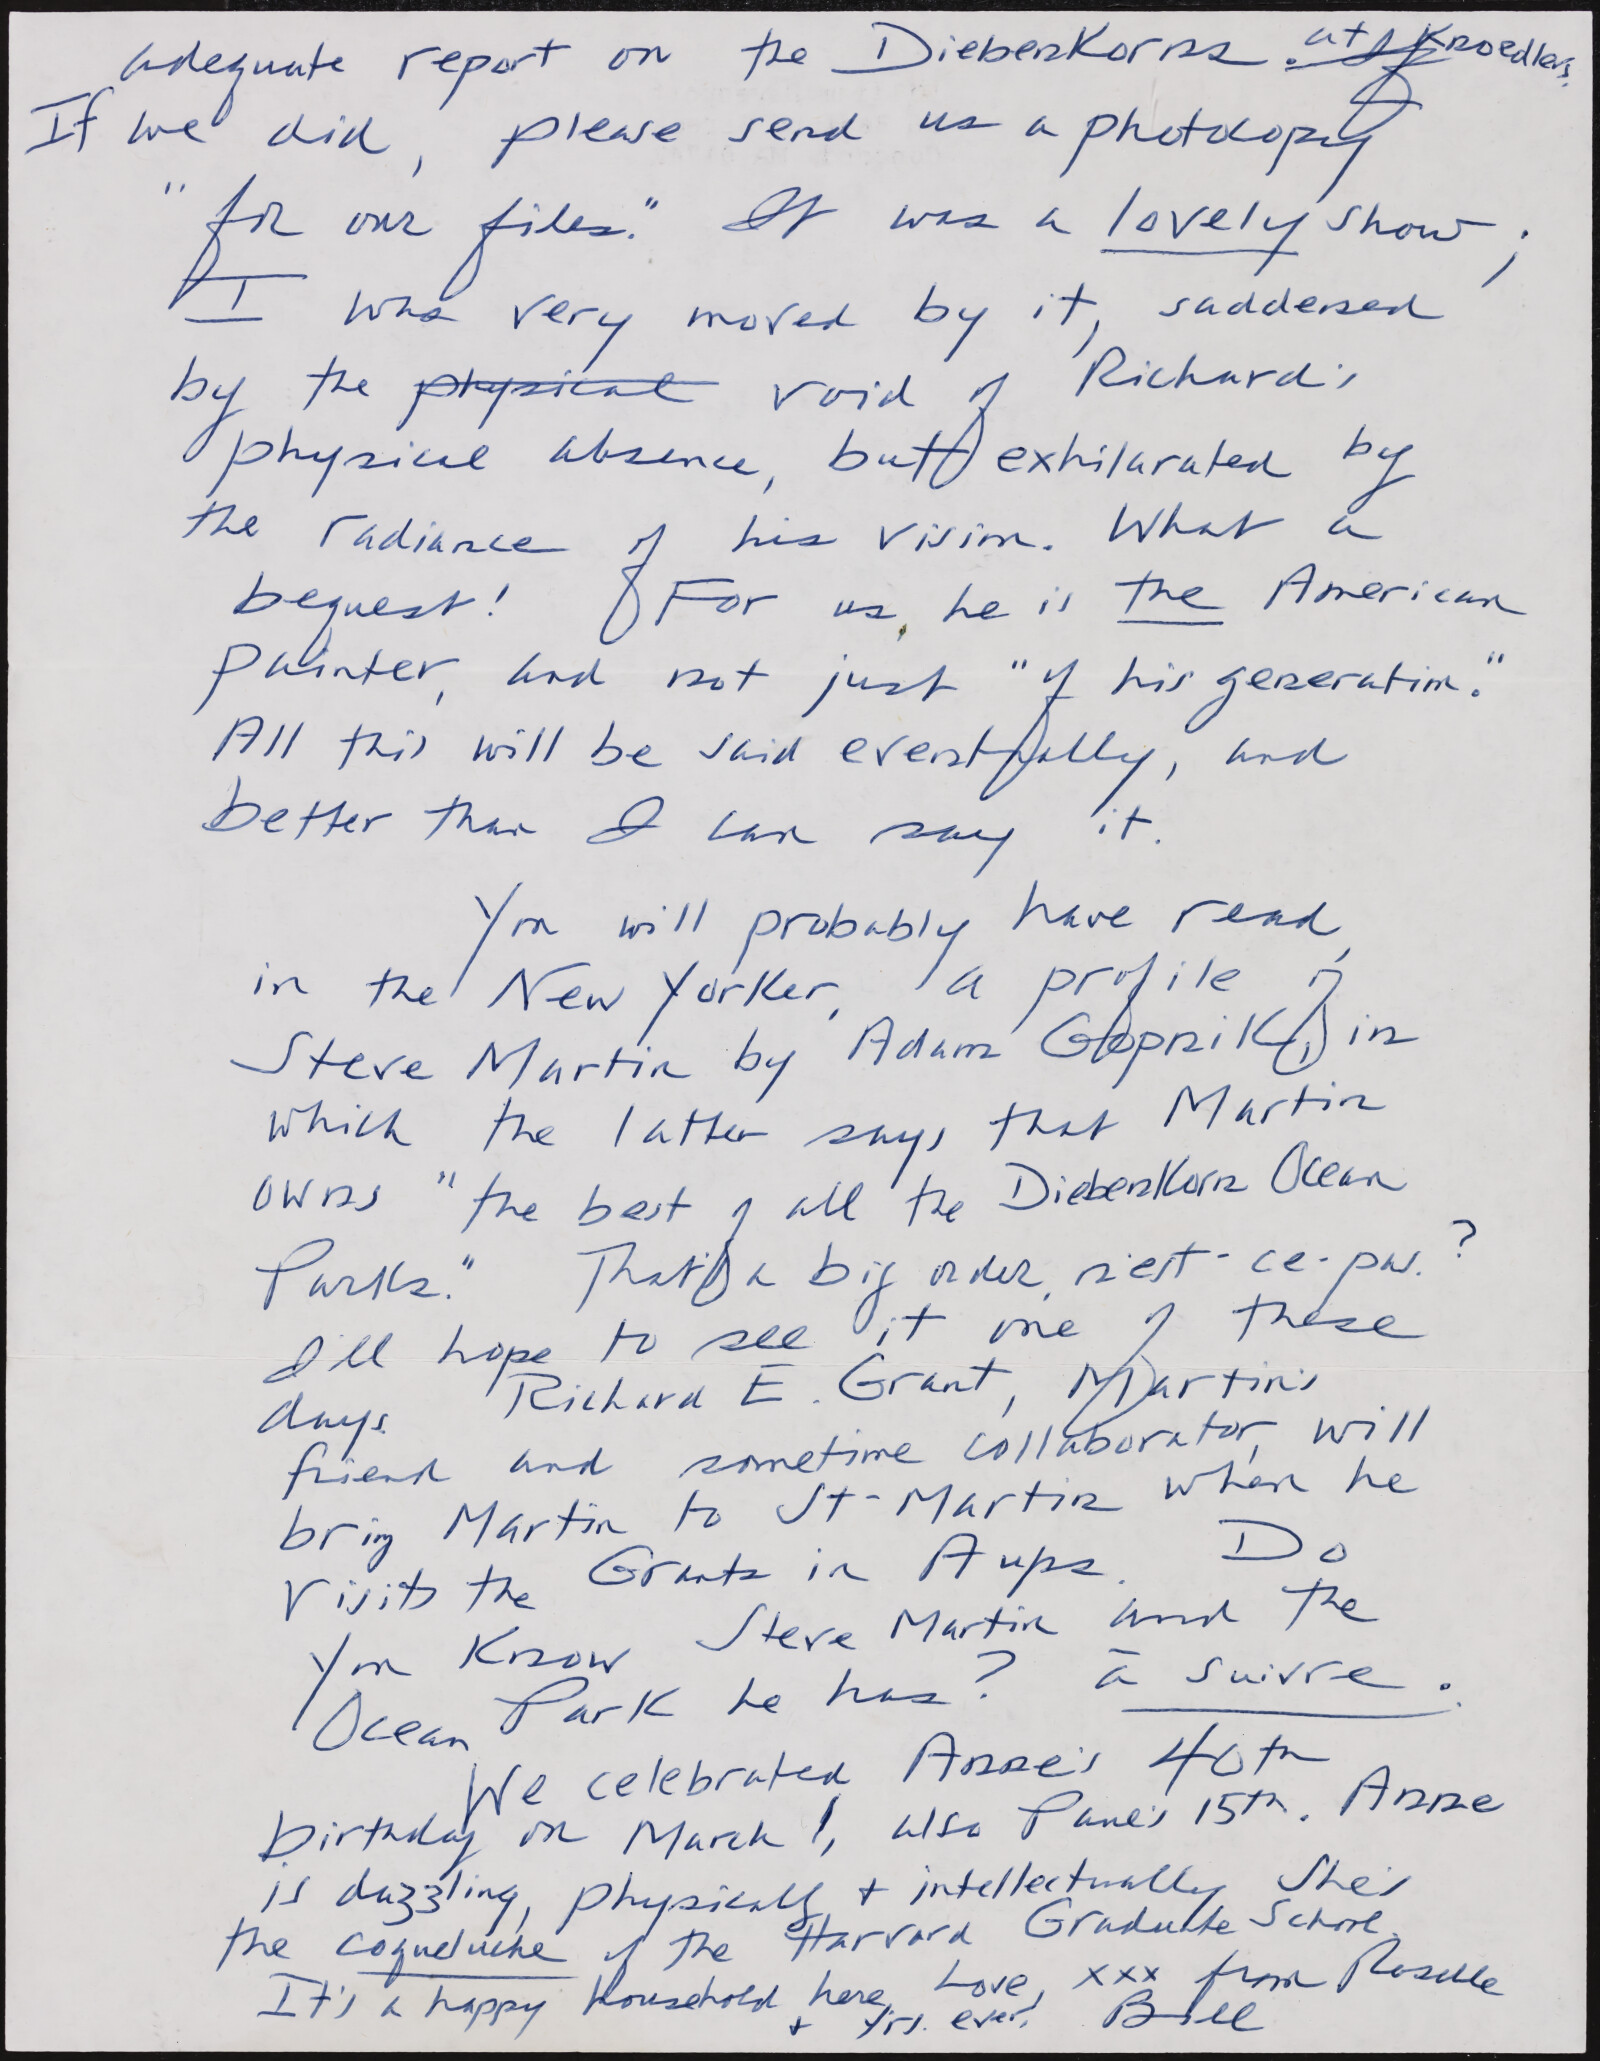 adequate report on the Diebenkorns at Knoedlers.
If we did, please send us a photocopy
"for our files." It was a lovely show;
I was very moved by it, saddened
by the physical void of Richard's
physical absence, but exhilarated by
the radiance of his vision. What a
bequest! For us, he is the American
painter, and not just "of his generation."
All this will be said eventually, and
better than I can say it.
You will probably have read,
in the New Yorker, a profile of
Steve Martin by Adam Gopnik, in
which the latter says that Martin
owns "the best of all the Diebenkorn Ocean
Parks." That's a big order, n'est-ce-pas.?
I'll hope to see it one of these
days. Richard E. Grant, Martin's
friend and sometime collaborator, will
bring Martin to St-Martin when he
visits the Grants in Aups. Do
you know Steve Martin and the
Ocean Park he has? à suivre.
We celebrated Anne's 40th
birthday on March 1, also 15th. Anne
is dazzling, physically + intellectually. She's
the coqueluche of the Harvard Graduate School.
It's a happy household here, Love, xxx from Roselle
+ Yrs. ever, Bill